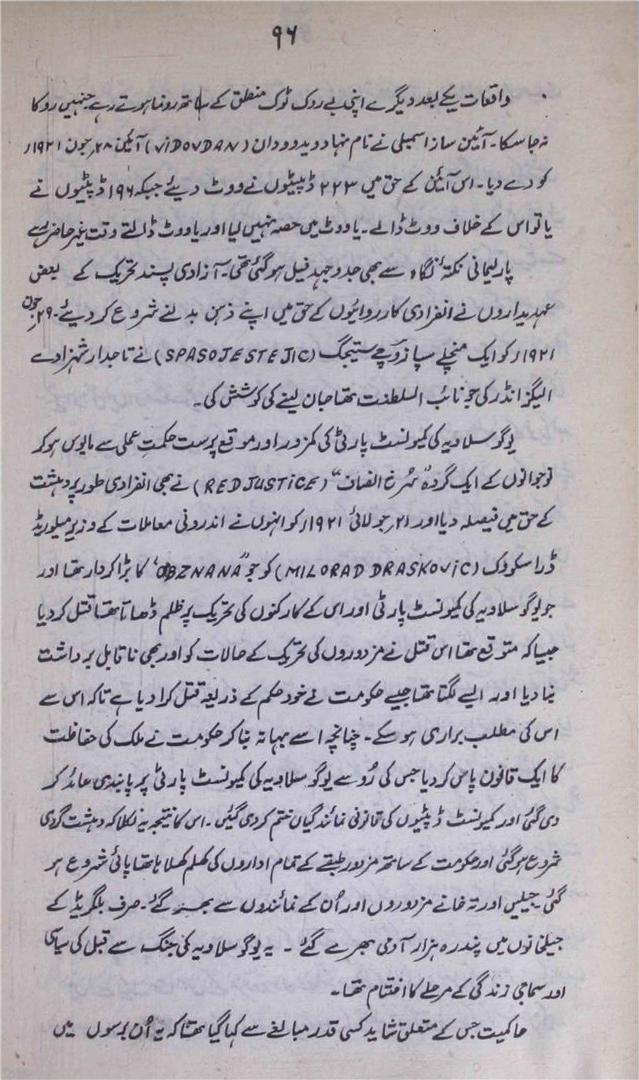 ۹۶
واقعات یکے بعد دیگرے اپنی بے روک ٹوک منطق کے ساتھ رونما ہوتے رہے جنہیں روکا
نہ جا سکا۔ آئین ساز اسمبلی نے نام نہاد ویدوودان (VIDOVDAN) آئین ۲۸ جون ۱۹۲۱ء
کو دے دیا۔ اس آئین کے حق میں ۲۲۳ ڈپٹیوں نے ووٹ دیئے جبکہ ۱۹۶ ڈپٹیوں نے
یا تو اس کے خلاف ووٹ ڈالے۔ یا ووٹ میں حصہ نہیں لیا اور یا ووٹ ڈالتے وقت غیر حاضر رہے
پارلیمانی نکتۂ نگاہ سے بھی جدوجہد فیل ہو گئی تھی۔ آزادی پسند تحریک کے بعض
عہدیداروں نے انفرادی کارروائیوں کے حق میں اپنے ذہن بدلنے شروع کر دیئے۔ ۲۹ جون
۱۹۲۱ء کو ایک منچلے سپازوجے ستیجک (SPASOJE STEJIC) نے تاجدار شہزادے
الیگزانڈر کی جو نائب السلطنت تھا جان لینے کی کوشش کی۔
یوگوسلاویہ کی کمیونسٹ پارٹی کی کمزور اور موقع پرست حکمتِ عملی سے مایوس ہو کر
نوجوانوں کے ایک گروہ "سُرخ انصاف" (RED JUSTICE) نے بھی انفرادی طور پر دہشت
کے حق میں فیصلہ دیا اور ۲۱ جولائی ۱۹۲۱ء کو انہوں نے اندرونی معاملات کے وزیر میلوریڈ
ڈراسکووک (MILORAD DRASKOVIC) کو جو "OBZNANA" کا بڑا کردار تھا اور
جو یوگوسلاویہ کی کمیونسٹ پارٹی اور اس کے کارکنوں کی تحریک پر ظلم ڈھاتا تھا قتل کر دیا
جیسا کہ متوقع تھا اس قتل نے مزدوروں کی تحریک کے حالات کو اور بھی ناقابلِ برداشت
بنا دیا اور ایسے لگتا تھا جیسے حکومت نے خود حکم کے ذریعہ قتل کرا دیا ہے تاکہ اس سے
اس کی مطلب براری ہو سکے۔ چنانچہ اسے بہانہ بنا کر حکومت نے ملک کی حفاظت
کا ایک قانون پاس کر دیا جس کی رُو سے یوگوسلاویہ کی کمیونسٹ پارٹی پر پابندی عائد کر
دی گئی اور کمیونسٹ ڈپٹیوں کی قانونی نمائندگیاں ختم کر دی گئیں۔ اس کا نتیجہ یہ نکلا کہ دہشت گردی
شروع ہو گئی اور حکومت کے ساتھ مزدور طبقے کے تمام اداروں کی کھلم کھلا ہاتھا پائی شروع ہو
گئی جیلیں اور تہ خانے مزدوروں اور اُن کے نمائندوں سے بھر گئے۔ صرف بلگریڈ کے
جیلخانوں میں پندرہ ہزار آدمی بھرے گئے۔ یہ یوگوسلاویہ کی جنگ سے قبل کی سیاسی
اور سماجی زندگی کے مرحلے کا اختتام تھا۔
حاکمیت جس کے متعلق شاید کسی قدر مبالغے سے کہا گیا تھا کہ یہ اُن برسوں میں